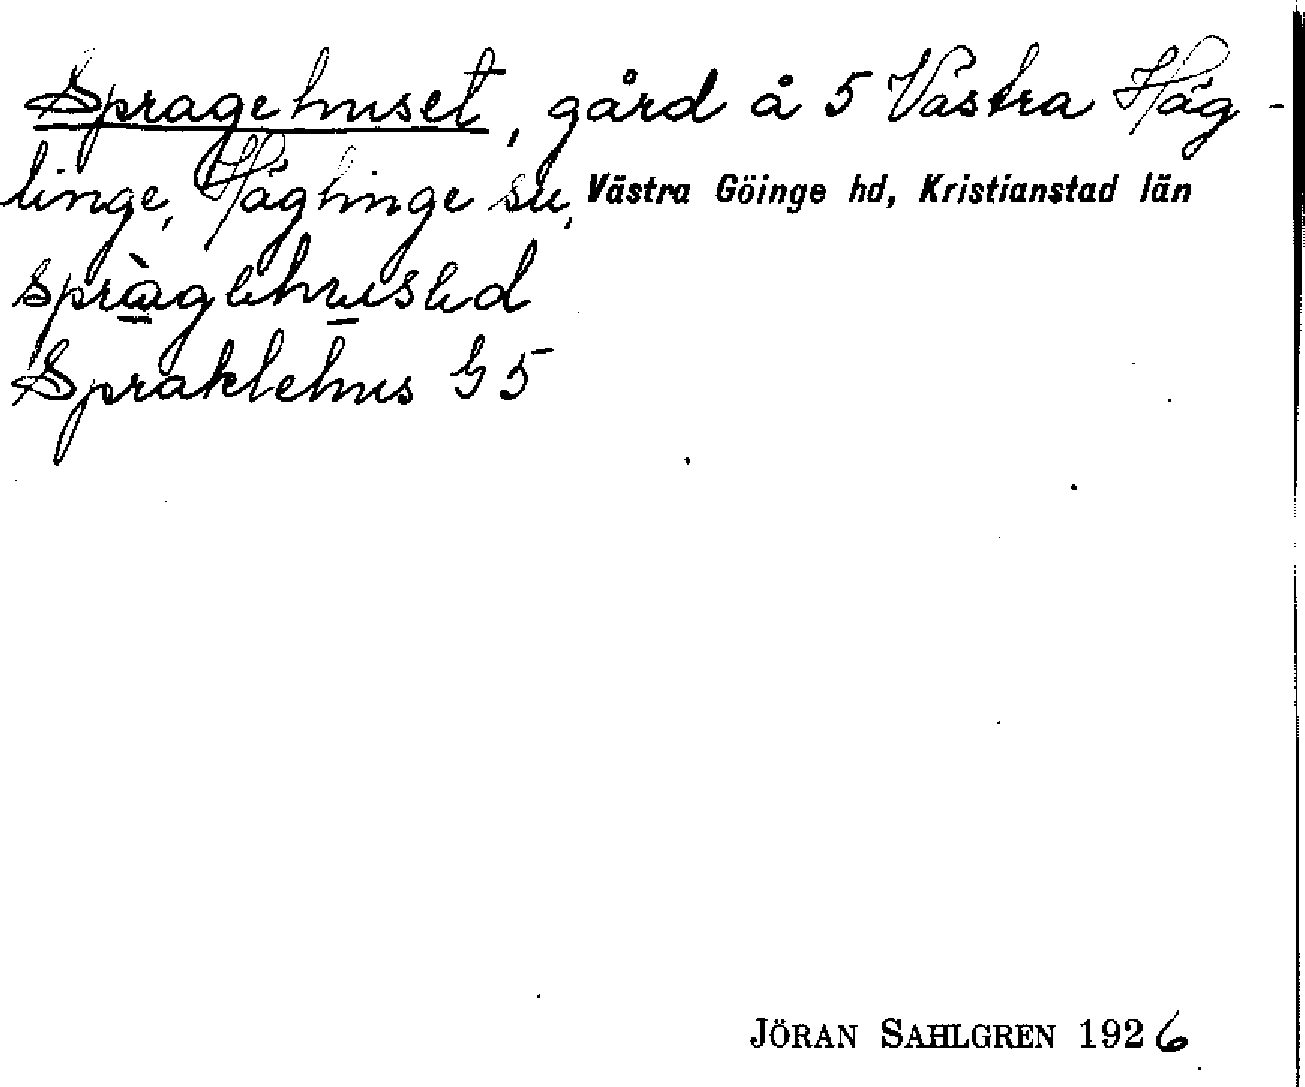 Spragehuset, gård å 5 Västra Häg-
linge, Häglinge sn, Västra Göinge hd, Kristianstad län
spràgəhusəd
Spraklehus G5
JÖRAN SAHLGREN 1926